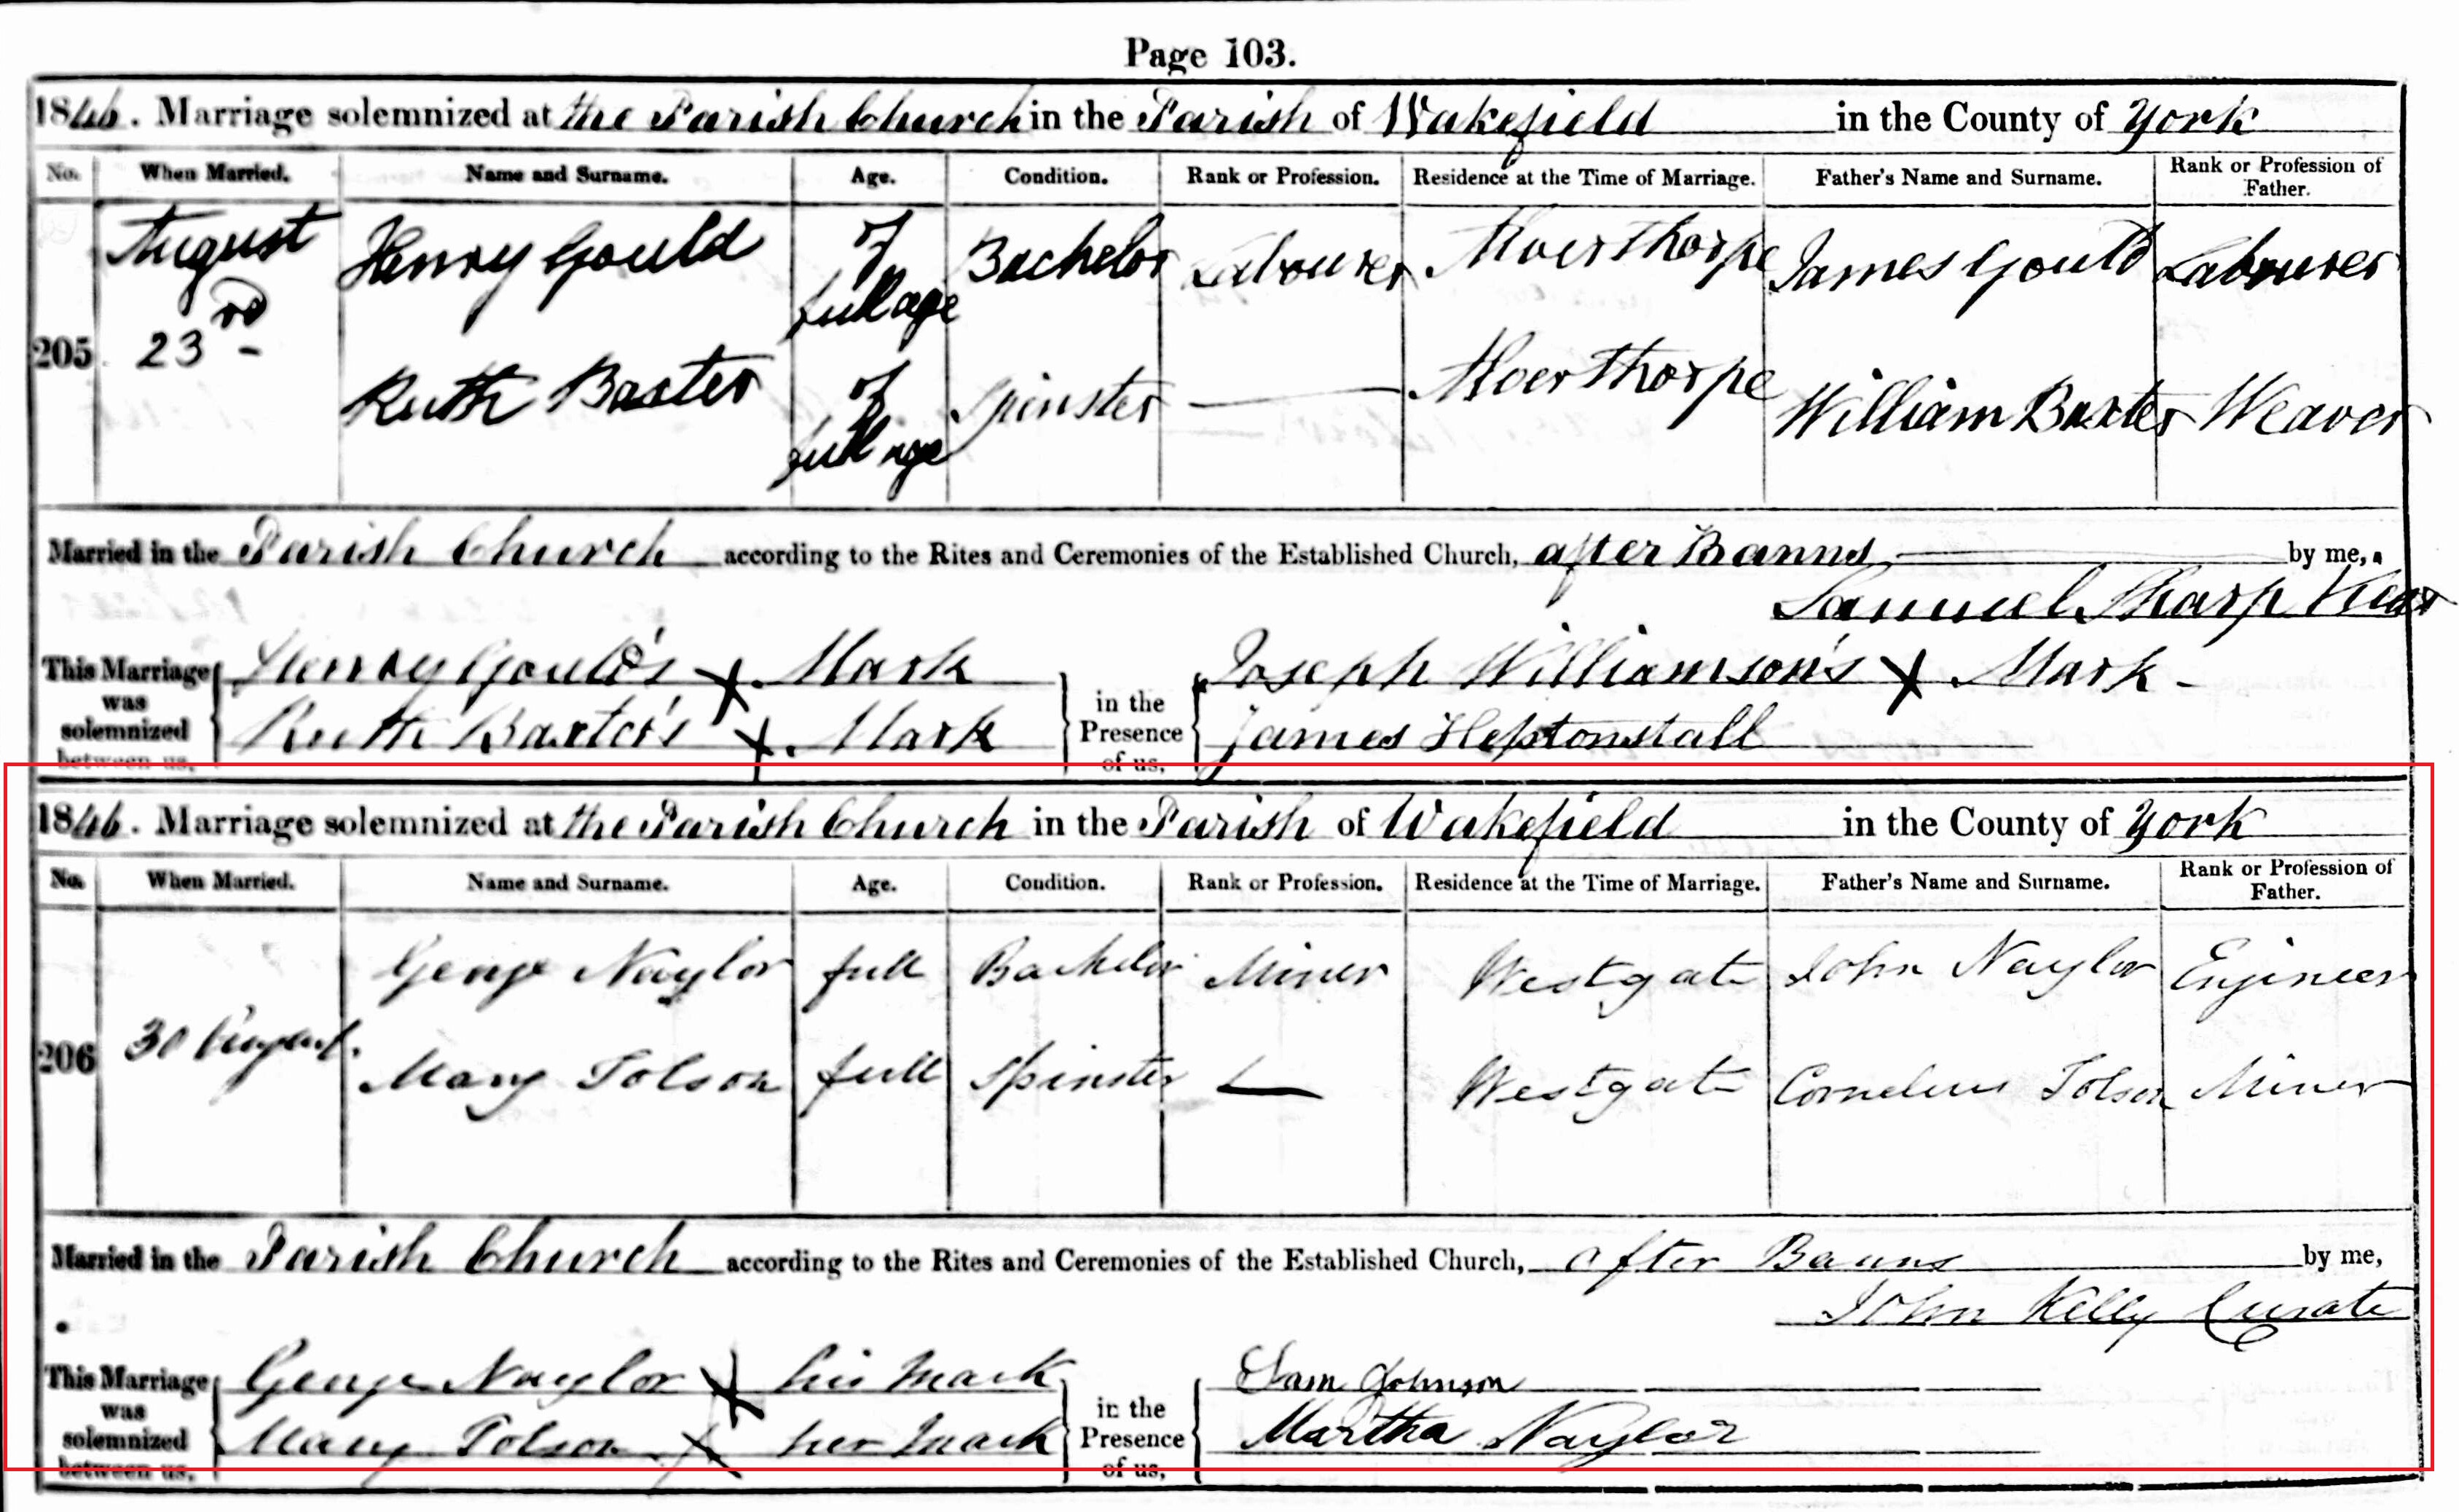 Page 103.
1846. Marriage solemnized at the Parish Church in the Parish of Wakefield in the County of York
No. When Married. Name and Surname. Age. Condition. Rank or Profession. Residence at the Time of Marriage. Father's Name and Surname. Rank or Profession of Father.
205 August 23rd Henry Gould of full age Bachelor Labourer Alverthorpe James Gould Labourer
Ruth Baxter of full age Spinster — Alverthorpe William Baxter Weaver
Married in the Parish Church according to the Rites and Ceremonies of the Established Church, after Banns by me,
Samuel Sharp Vicar
This Marriage was solemnized between us, Henry Gould's X Mark in the Presence of us, Joseph Williamson's X Mark
Ruth Baxter's X Mark James Heptonstall
1846. Marriage solemnized at the Parish Church in the Parish of Wakefield in the County of York
No. When Married. Name and Surname. Age. Condition. Rank or Profession. Residence at the Time of Marriage. Father's Name and Surname. Rank or Profession of Father.
206 30 August. George Naylor full Bachelor Miner Westgate John Naylor Engineer
Mary Tolson full Spinster — Westgate Cornelius Tolson Miner
Married in the Parish Church according to the Rites and Ceremonies of the Established Church, after Banns by me,
John Kelly Curate
This Marriage was solemnized between us, George Naylor X his mark in the Presence of us, Sam Johnson
Mary Tolson X her mark Martha Naylor